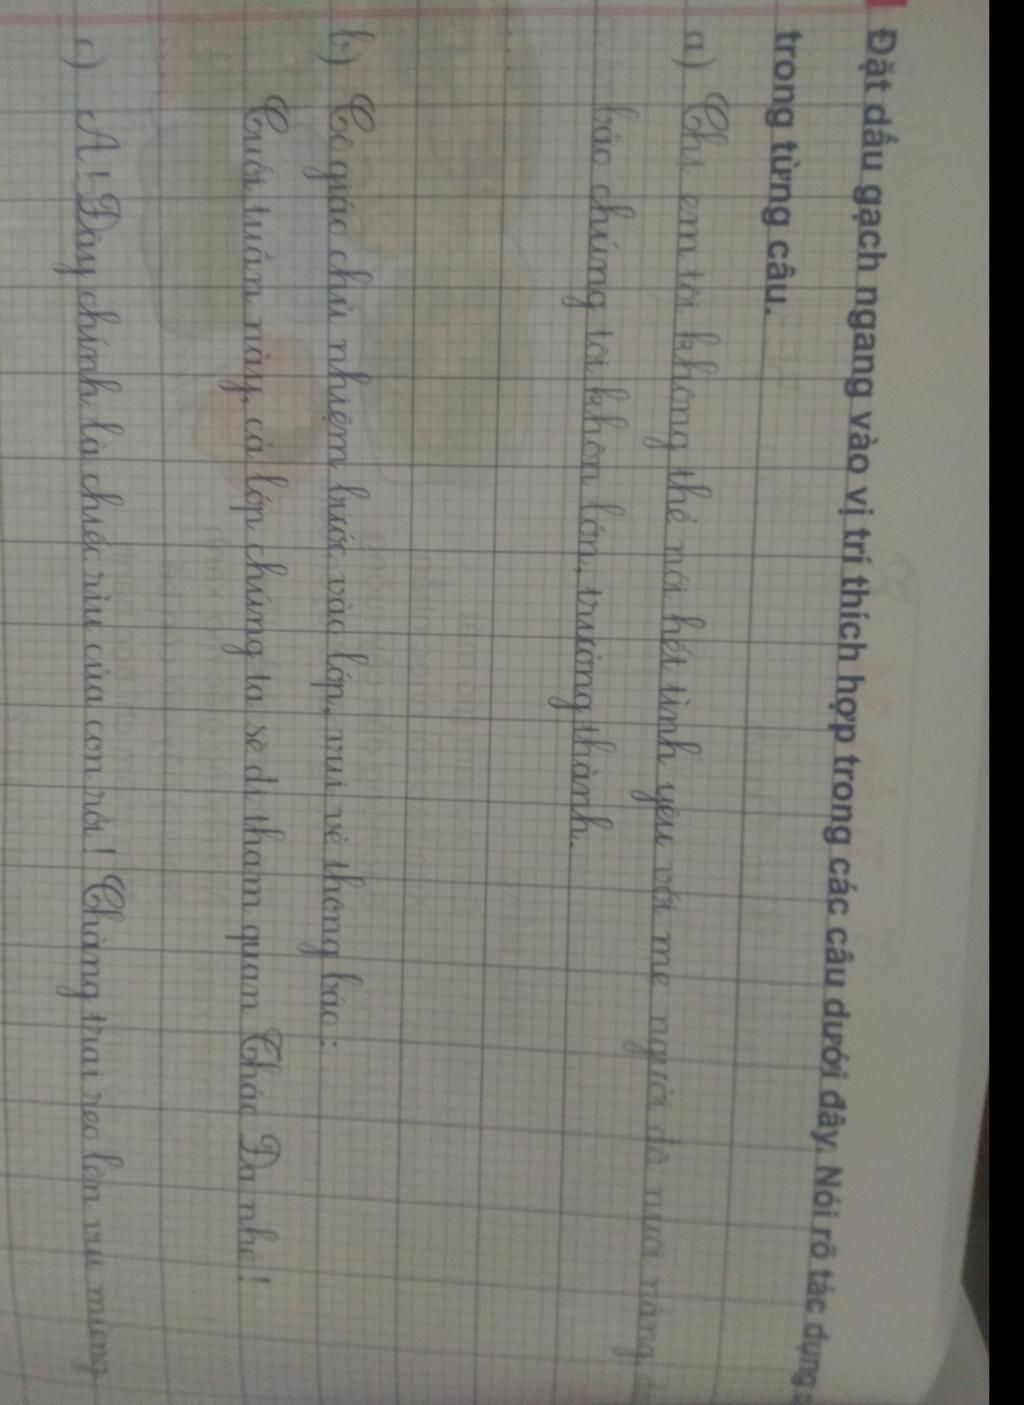 Đặt dấu gạch ngang vào vị trí thích hợp trong các câu dưới đây. Nói rõ tác dụng
trong từng câu.
a) Chị em tôi không thể nói hết tình yêu với mẹ người đã nuôi nấng,
bảo chúng tôi khôn lớn, trưởng thành.
b) Cô giáo chủ nhiệm bước vào lớp, vui vẻ thông báo:
Cuối tuần này, cả lớp chúng ta sẽ đi tham quan Thác Đa nhé!
c) A! Đây chính là chiếc rìu của con rồi! Chàng trai reo lên vui mừng